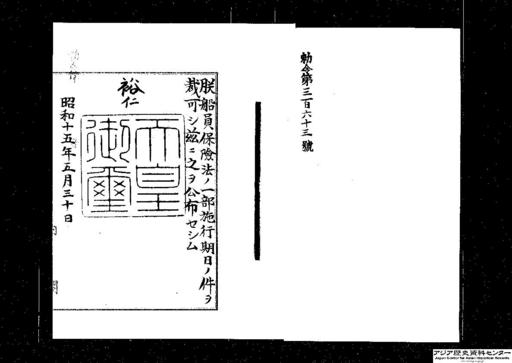 勅令第三百六十三號
朕船員保險法ノ一部施行期日ノ件ヲ
裁可シ玆ニ之ヲ公布セシム
裕仁
天皇御璽
昭和十五年五月三十日
アジア歴史資料センター
Japan Center for Asian Historical Records